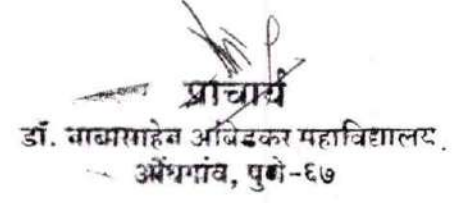 प्राचार्य
डॉ. बाबासाहेब आंबेडकर महाविद्यालय.
औंधगांव, पुणे-६७